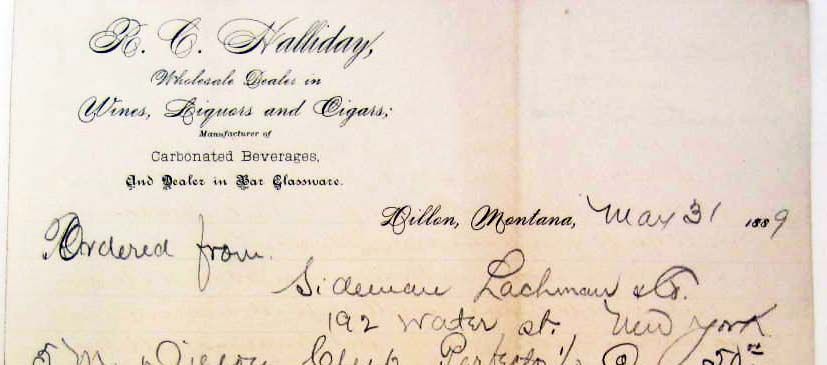 R. C. Halliday,
Wholesale Dealer in
Wines, Liquors and Cigars;
Manufacturer of
Carbonated Beverages,
And Dealer in Bar Glassware.
Dillon, Montana, May 31 1889
Ordered from
Sideman Lachman & Co.
192 Water st. New York
5 M Club Perfecto 1/2